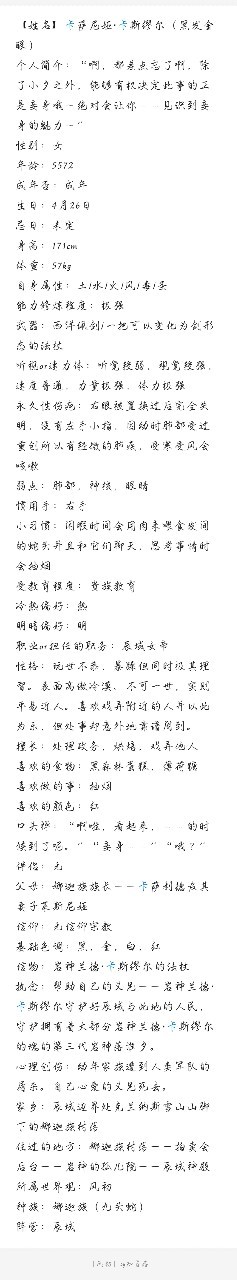 【姓名】 卡萨尼娅·卡斯缪尔（黑发金
眼）
个人简介：“啊，那差点忘了啊，除
了小夕之外，能够有权决定此事的正
是妾身哦~绝对会让你——见识到妾
身的魅力~”
性别：女
年龄：5572
成年否：成年
生日：4月26日
忌日：未定
身高：171cm
体重：57kg
自身属性：土/水/火/风/毒/圣
能力修炼程度：极强
武器：西洋佩剑/一把可以变化为剑形
态的法杖
听视or速力体：听觉较弱，视觉较强，
速度普通，力量极强，体力极强
永久性伤病：右眼被置换过后完全失
明，没有左手小指，因幼时肺部受过
重创所以有轻微的肺病，受寒受风会
咳嗽
弱点：肺部，神核，眼睛
惯用手：右手
小习惯：闲暇时间会用肉来喂食发间
的蛇头并且和它们聊天，思考事情时
会抽烟
受教育程度：贵族教育
冷热偏好：热
明暗偏好：明
职业or担任的职务：辰域女帝
性格：玩世不恭，暴躁但同时极其理
智。表面高傲冷漠、不可一世，实则
平易近人。喜欢戏弄附近的人并以此
为乐，但处事却意外地靠谱周到。
擅长：处理政务，烘焙，戏弄他人
喜欢的食物：黑森林蛋糕，薄荷糖
喜欢做的事：抽烟
喜欢的颜色：红
口头禅：“啊啦，看起来，——的时
候到了呢。”“妾身——”“哦？”
伴侣：无
父母：娜迦族族长——卡萨利德及其
妻子莫斯尼娅
信仰：无信仰宗教
基础色调：黑，金，白，红
信物：岩神兰德·卡斯缪尔的法杖
执念：帮助自己的义兄——岩神兰德·
卡斯缪尔守护好辰域与此地的人民，
守护拥有着大部分岩神兰德·卡斯缪尔
的魂的第三代岩神洛淮夕。
心理创伤：幼年家族遭到人类军队的
屠杀。自己心爱的义兄死去。
家乡：辰域边界处克兰纳斯雪山山脚
下的娜迦族村落
住过的地方：娜迦族村落——拍卖会
后台——岩神的孤儿院——辰域神殿
所属世界观：风初
种族：娜迦族（九头蛇）
阵营：辰域